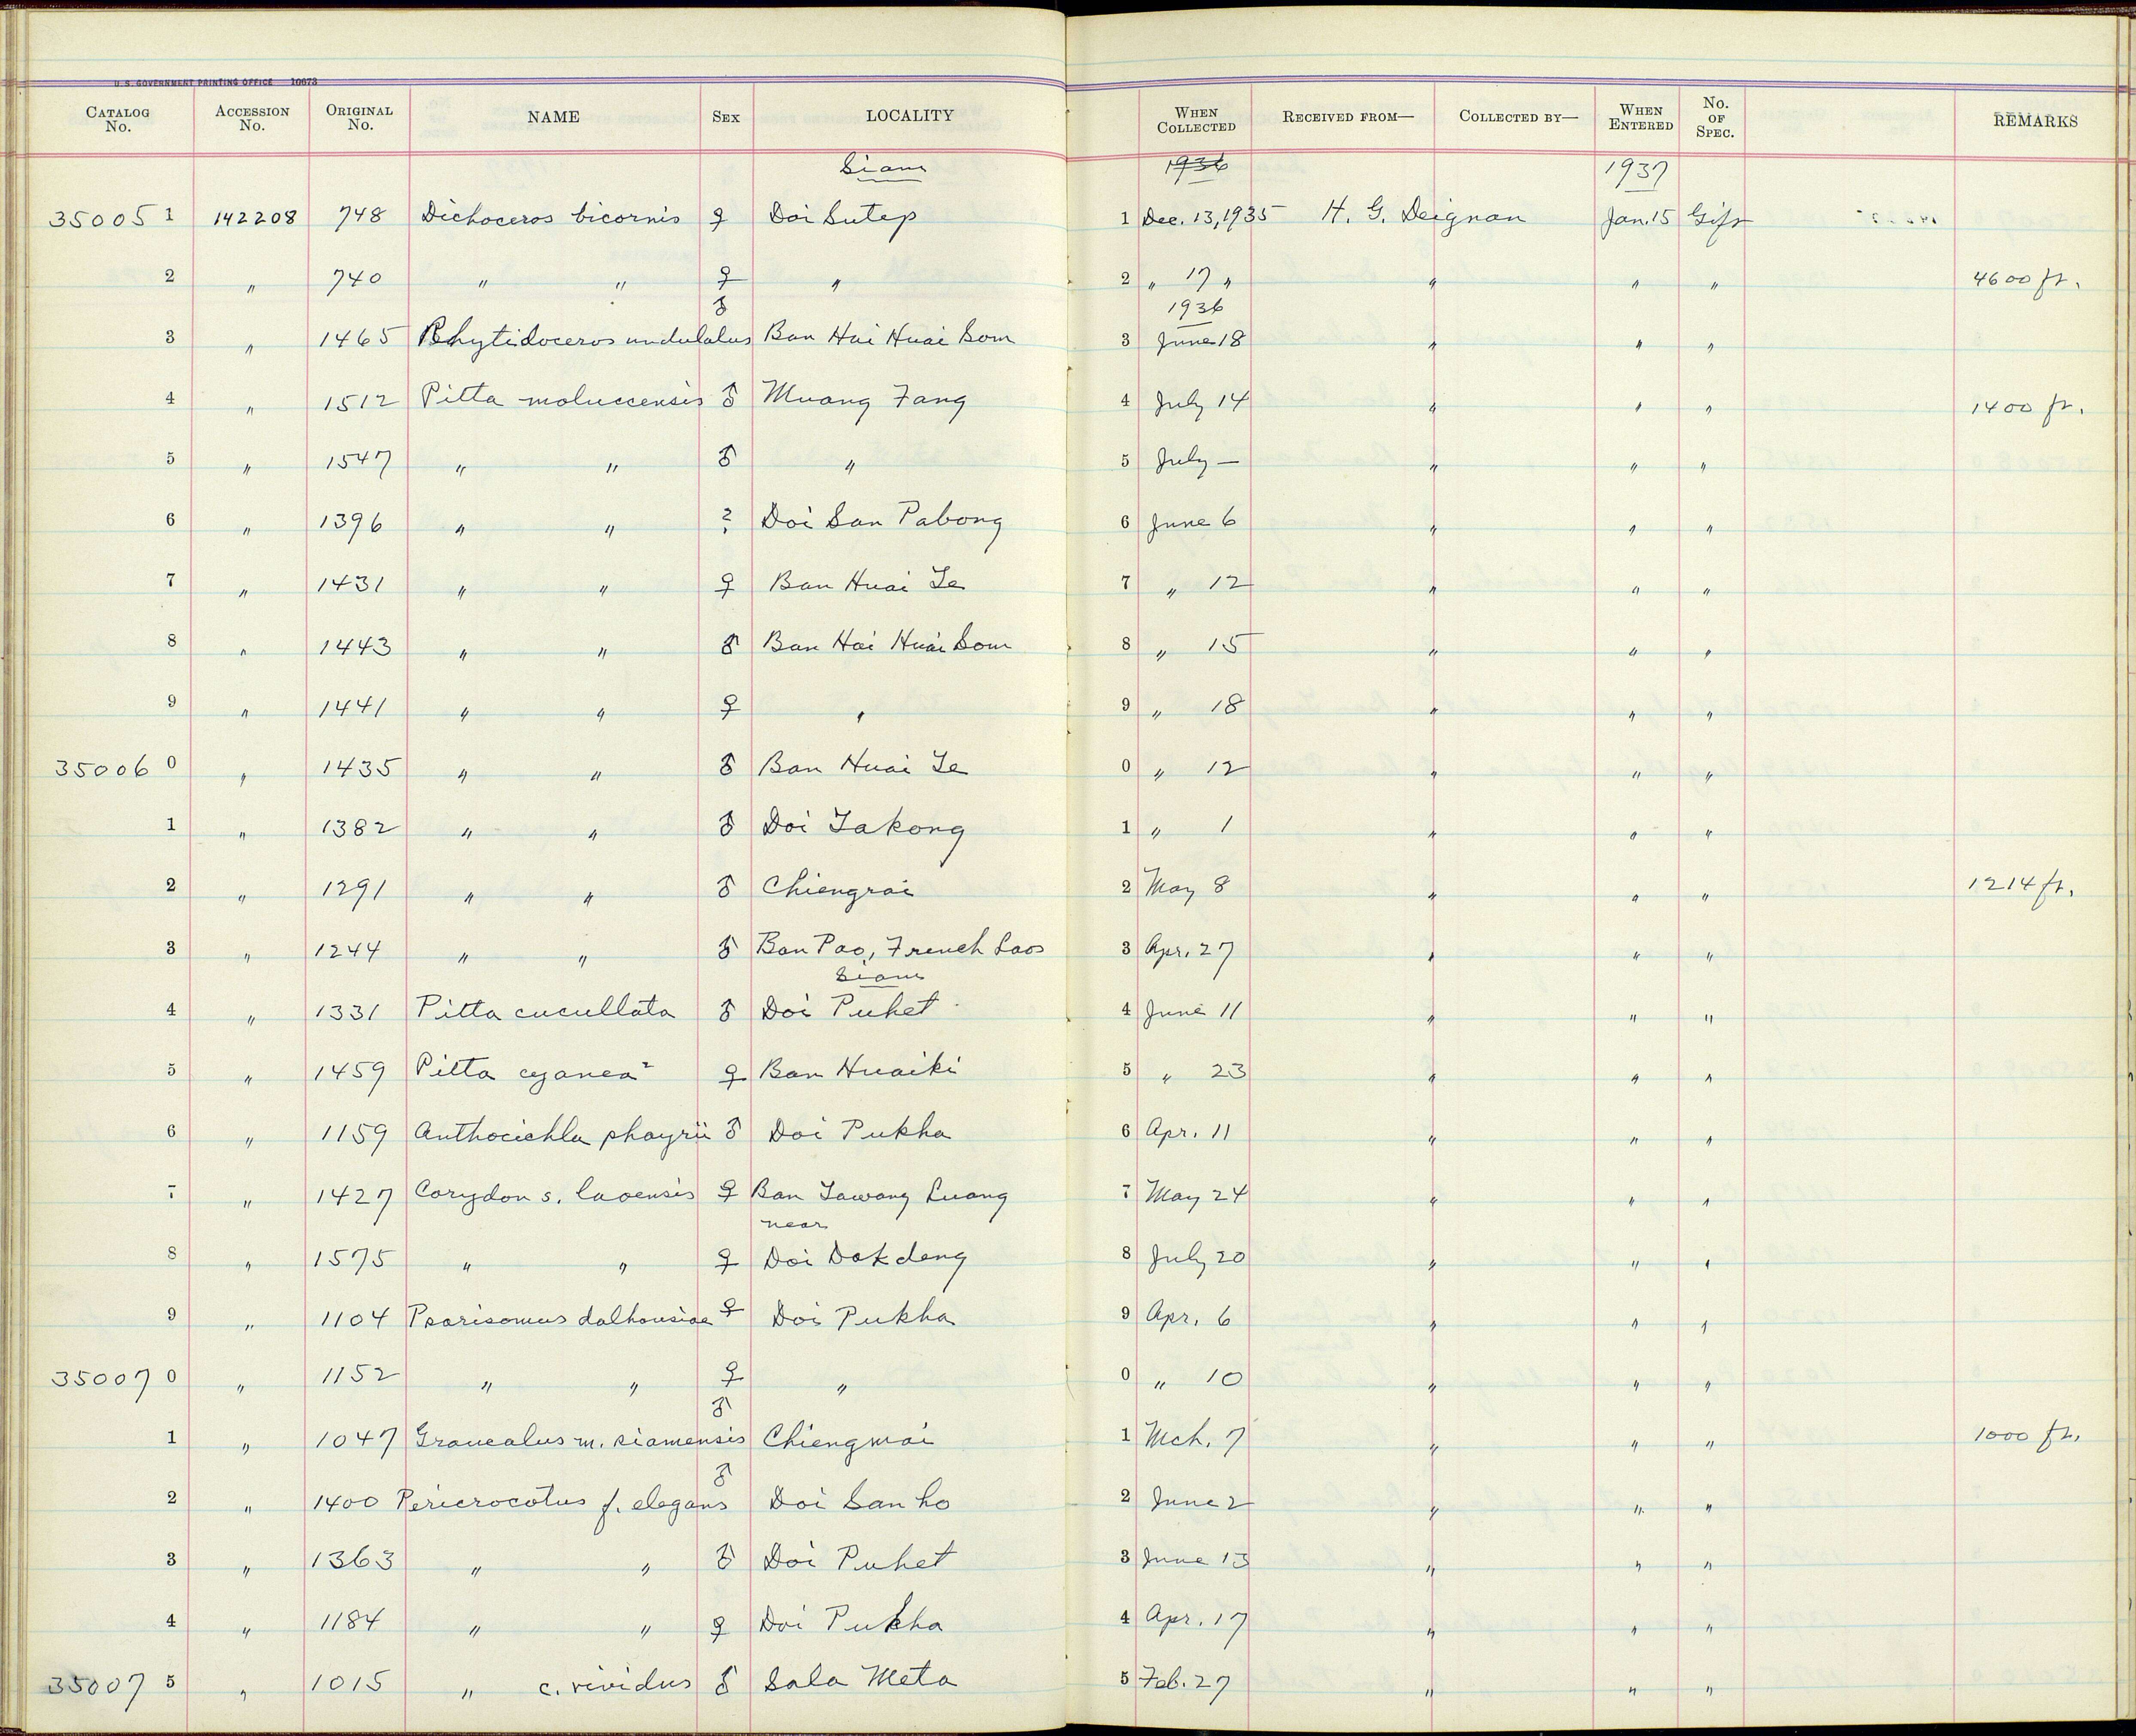 U.S. GOVERNMENT PRINTING OFFICE 10673
CATALOG No. ACCESSION No. ORIGINAL No. NAME SEX LOCALITY WHEN COLLECTED RECEIVED FROM— COLLECTED BY— WHEN ENTERED No. OF SPEC. REMARKS
Siam 1936 1937
35005 1 142208 748 Dichoceros bicornis ♀ Doi Sutep 1 Dec. 13, 1935 H. G. Deignan Jan. 15 Gift
2 " 740 " " ♀ " 2 " 17 " " " " 4600 ft.
♂ 1936
3 " 1465 Rhytidoceros undulatus Ban Hai Huai Som 3 June 18 " " "
4 " 1512 Pitta moluccensis ♂ Muang Fang 4 July 14 " " " 1400 ft.
5 " 1547 " " ♂ " 5 July — " " "
6 " 1396 " " ? Doi San Pabong 6 June 6 " " "
7 " 1431 " " ♀ Ban Huai Te 7 " 12 " " "
8 " 1443 " " ♂ Ban Hai Huai Som 8 " 15 " " "
9 " 1441 " " ♀ " 9 " 18 " " "
35006 0 " 1435 " " ♂ Ban Huai Te 0 " 12 " " "
1 " 1382 " " ♂ Doi Takong 1 " 1 " " "
2 " 1291 " " ♂ Chiengrai 2 May 8 " " " 1214 ft.
3 " 1244 " " ♂ Ban Pao, French Laos 3 Apr. 27 " " "
Siam
4 " 1331 Pitta cucullata ♂ Doi Puket 4 June 11 " " "
5 " 1459 Pitta cyanea ? ♀ Ban Huaiki 5 " 23 " " "
6 " 1159 Anthocichla phayrii ♂ Doi Pukha 6 Apr. 11 " " "
7 " 1427 Corydon s. laoensis ♀ Ban Tawang Luang 7 May 24 " " "
near
8 " 1575 " " ♀ Doi Dokdeng 8 July 20 " " "
9 " 1104 Psarisomus dalhousiae ♀ Doi Pukha 9 Apr. 6 " " "
35007 0 " 1152 " " ♀ " 0 " 10 " " "
♂
1 " 1047 Graucalus m. siamensis Chiengmai 1 Mch. 7 " " " 1000 ft.
♂
2 " 1400 Pericrocotus f. elegans Doi San ho 2 June 2 " " "
3 " 1363 " " ♂ Doi Puket 3 June 13 " " "
4 " 1184 " " ♀ Doi Pukha 4 Apr. 17 " " "
35007 5 " 1015 " c. vividus ♂ Sala Meta 5 Feb. 27 " " "